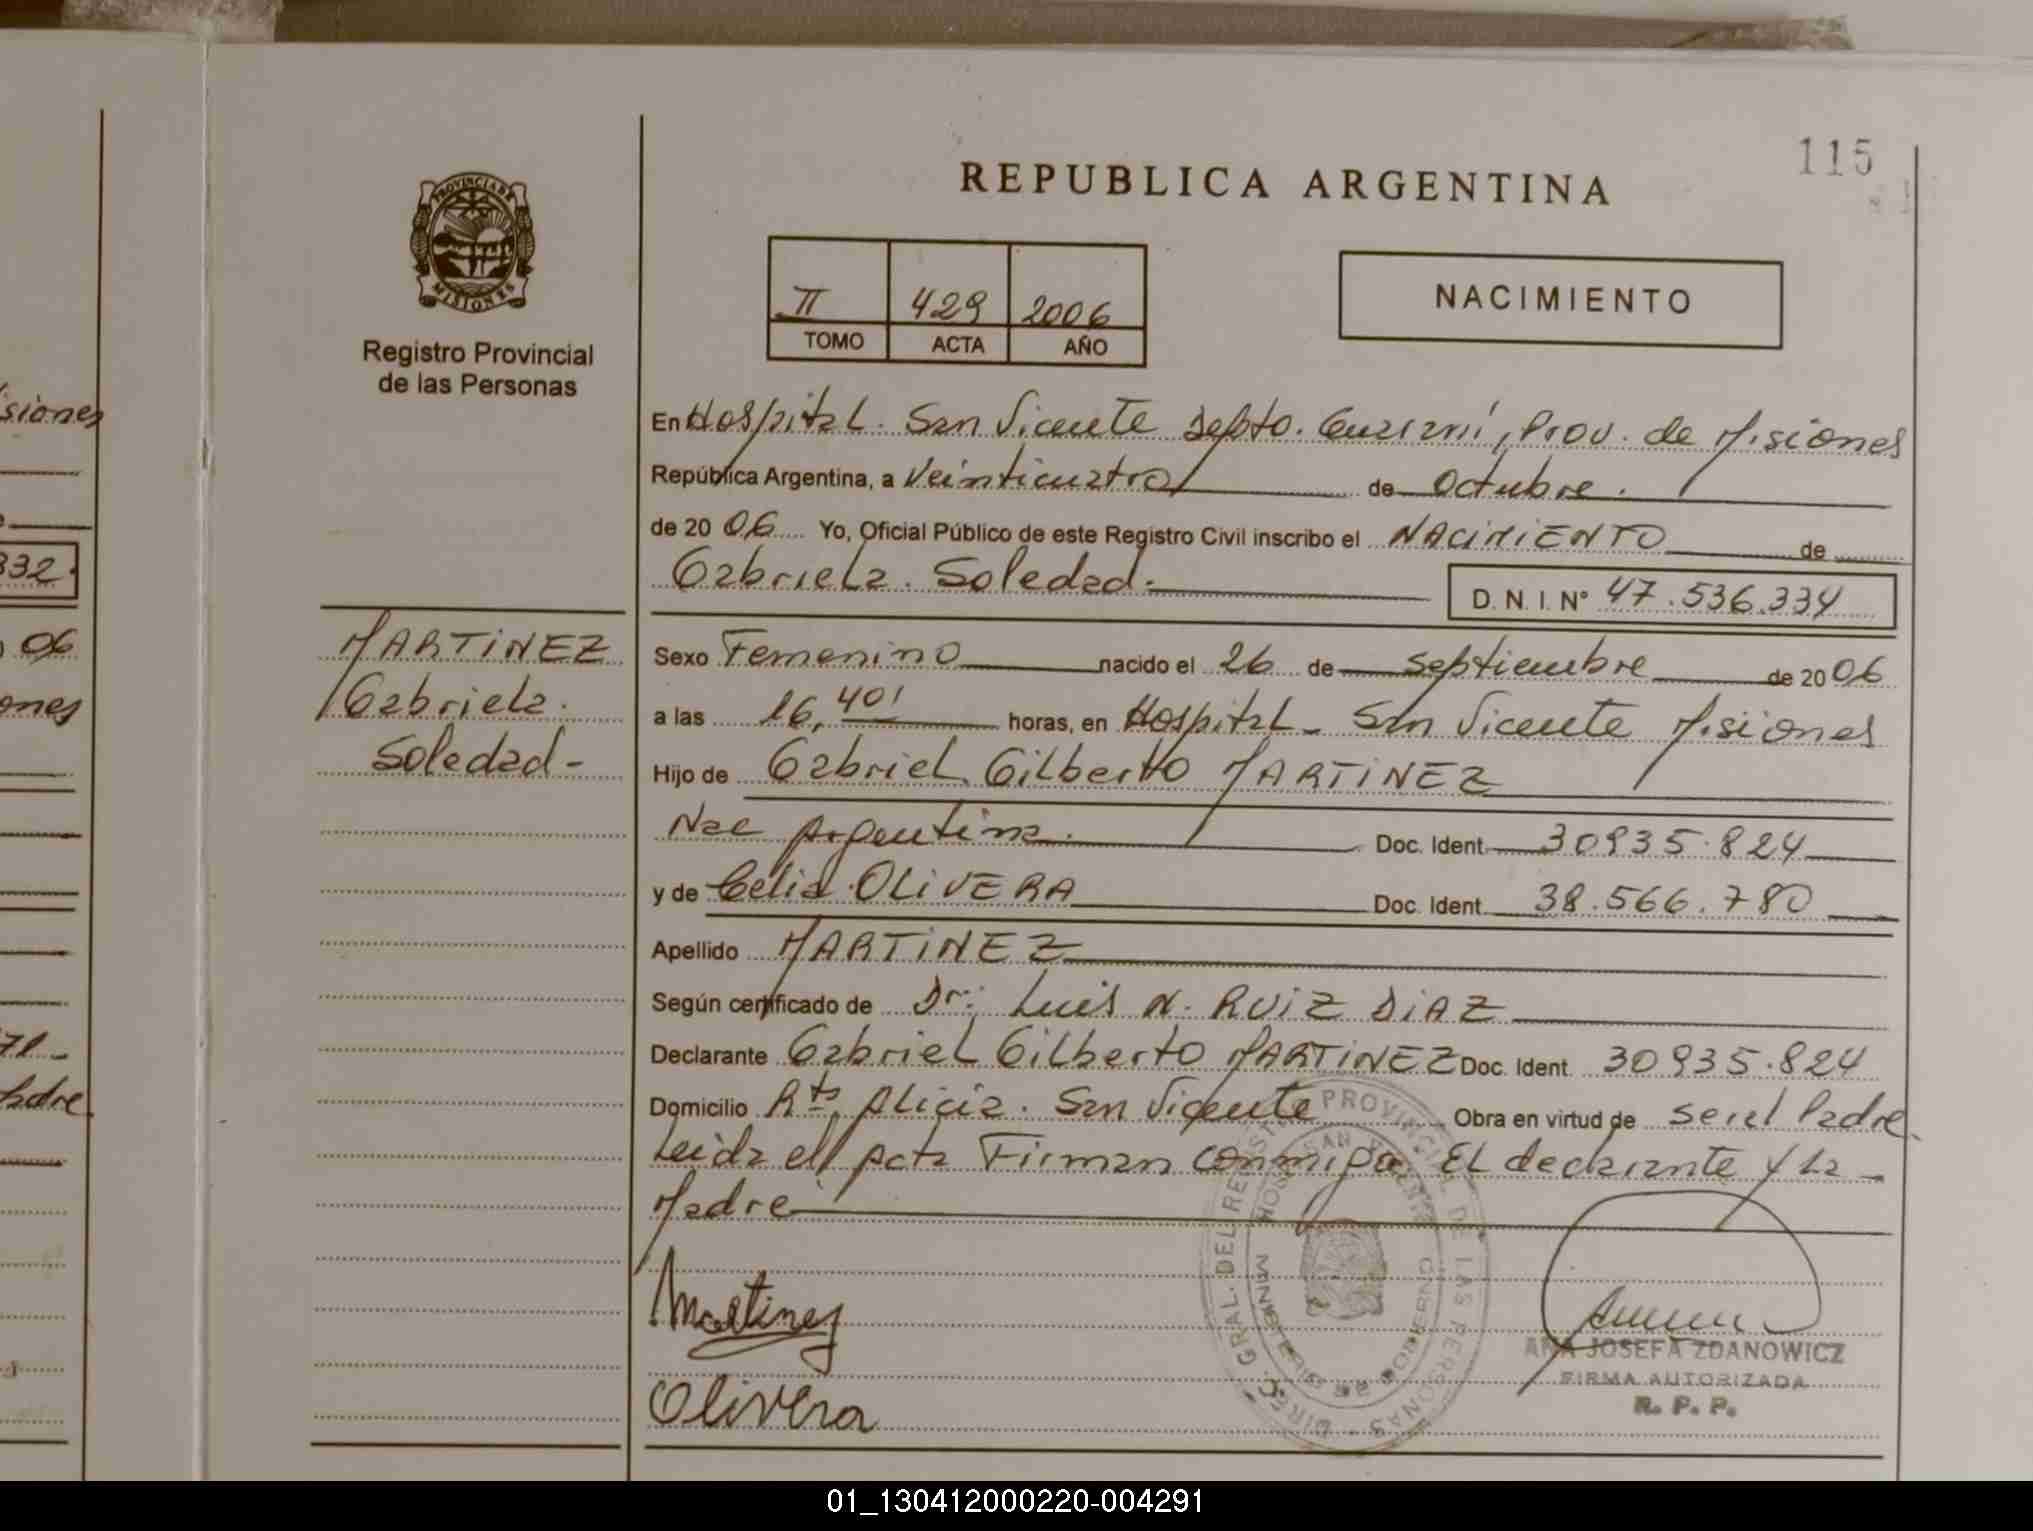 siones
332.
06
ones
71-
Padre
PROVINCIA DE
MISIONES
Registro Provincial
de las Personas
MARTINEZ
Gabriela.
Soledad-
115
REPUBLICA ARGENTINA
II 429 2006
TOMO ACTA AÑO
NACIMIENTO
En Hospital. San Vicente Depto. Guaraní, Prov. de Misiones
República Argentina, a Veinticuatro de Octubre.
de 20 06 Yo, Oficial Público de este Registro Civil inscribo el NACIMIENTO de
Gabriela. Soledad.
D. N. I. N° 47.536.334
Sexo Femenino nacido el 26 de Septiembre de 20 06
a las 16,40' horas, en Hospital - San Vicente Misiones
Hijo de Gabriel Gilberto MARTINEZ
Nac Argentina. Doc. Ident. 30935.824
y de Celia OLIVERA Doc. Ident. 38.566.780
Apellido MARTINEZ
Según certificado de Dr: Luis N. RUIZ DIAZ
Declarante Gabriel Gilberto MARTINEZ Doc. Ident. 30935.824
Domicilio Rta. Alicia. San Vicente Obra en virtud de ser el Padre.
Leida el Acta Firman conmigo El declarante y La -
Madre
Martinez
Olivera
DIREC. GRAL. DEL REGISTRO PROVINCIAL DE LAS PERSONAS
SAN VICENTE
ANA JOSEFA ZDANOWICZ
FIRMA AUTORIZADA
R. P. P.
01_130412000220-004291